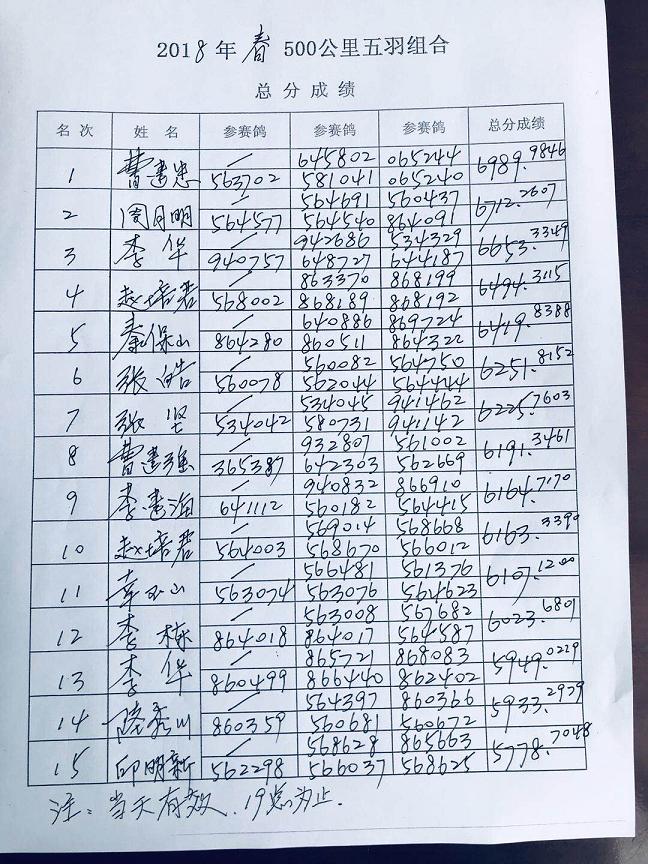 2018年春500公里五羽组合
总分成绩
名次 姓名 参赛鸽 参赛鸽 参赛鸽 总分成绩
/ 645802 065244
1 曹建忠 563702 581041 065240 6989.9846
/ 564691 560437
2 周月明 564577 564540 864091 6712.2607
/ 942686 534329
3 李华 940757 648727 644187 6653.3349
/ 863370 868199
4 赵培君 568002 868189 868192 6494.3115
/ 640886 869724
5 秦保山 864280 860511 864322 6419.8388
/ 560082 564750
6 张皓 560078 562044 564444 6251.8152
/ 534045 941462
7 张坚 534042 580731 941142 6225.7603
/ 932807 561002
8 曹建强 365387 642303 562669 6191.3461
/ 940832 866910
9 李 641112 560182 564415 6164.7170
/ 569014 568668
10 赵培君 564003 568670 566012 6163.3390
/ 566481 561376
11 山 563074 563076 564623 6107.1200
/ 563008 567682
12 李栋 864018 864017 564587 6023.6801
/ 865721 868083
13 李华 860499 866440 862402 5949.0229
/ 564397 860366
14 陆 川 860359 560681 560672 5933.2979
/ 568628 865663
15 邱明新 562298 566037 568625 5778.7048
注：当天有效、19点为止.